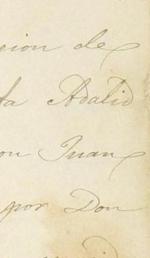 sion de
ta Adalid
on Juan
por Don